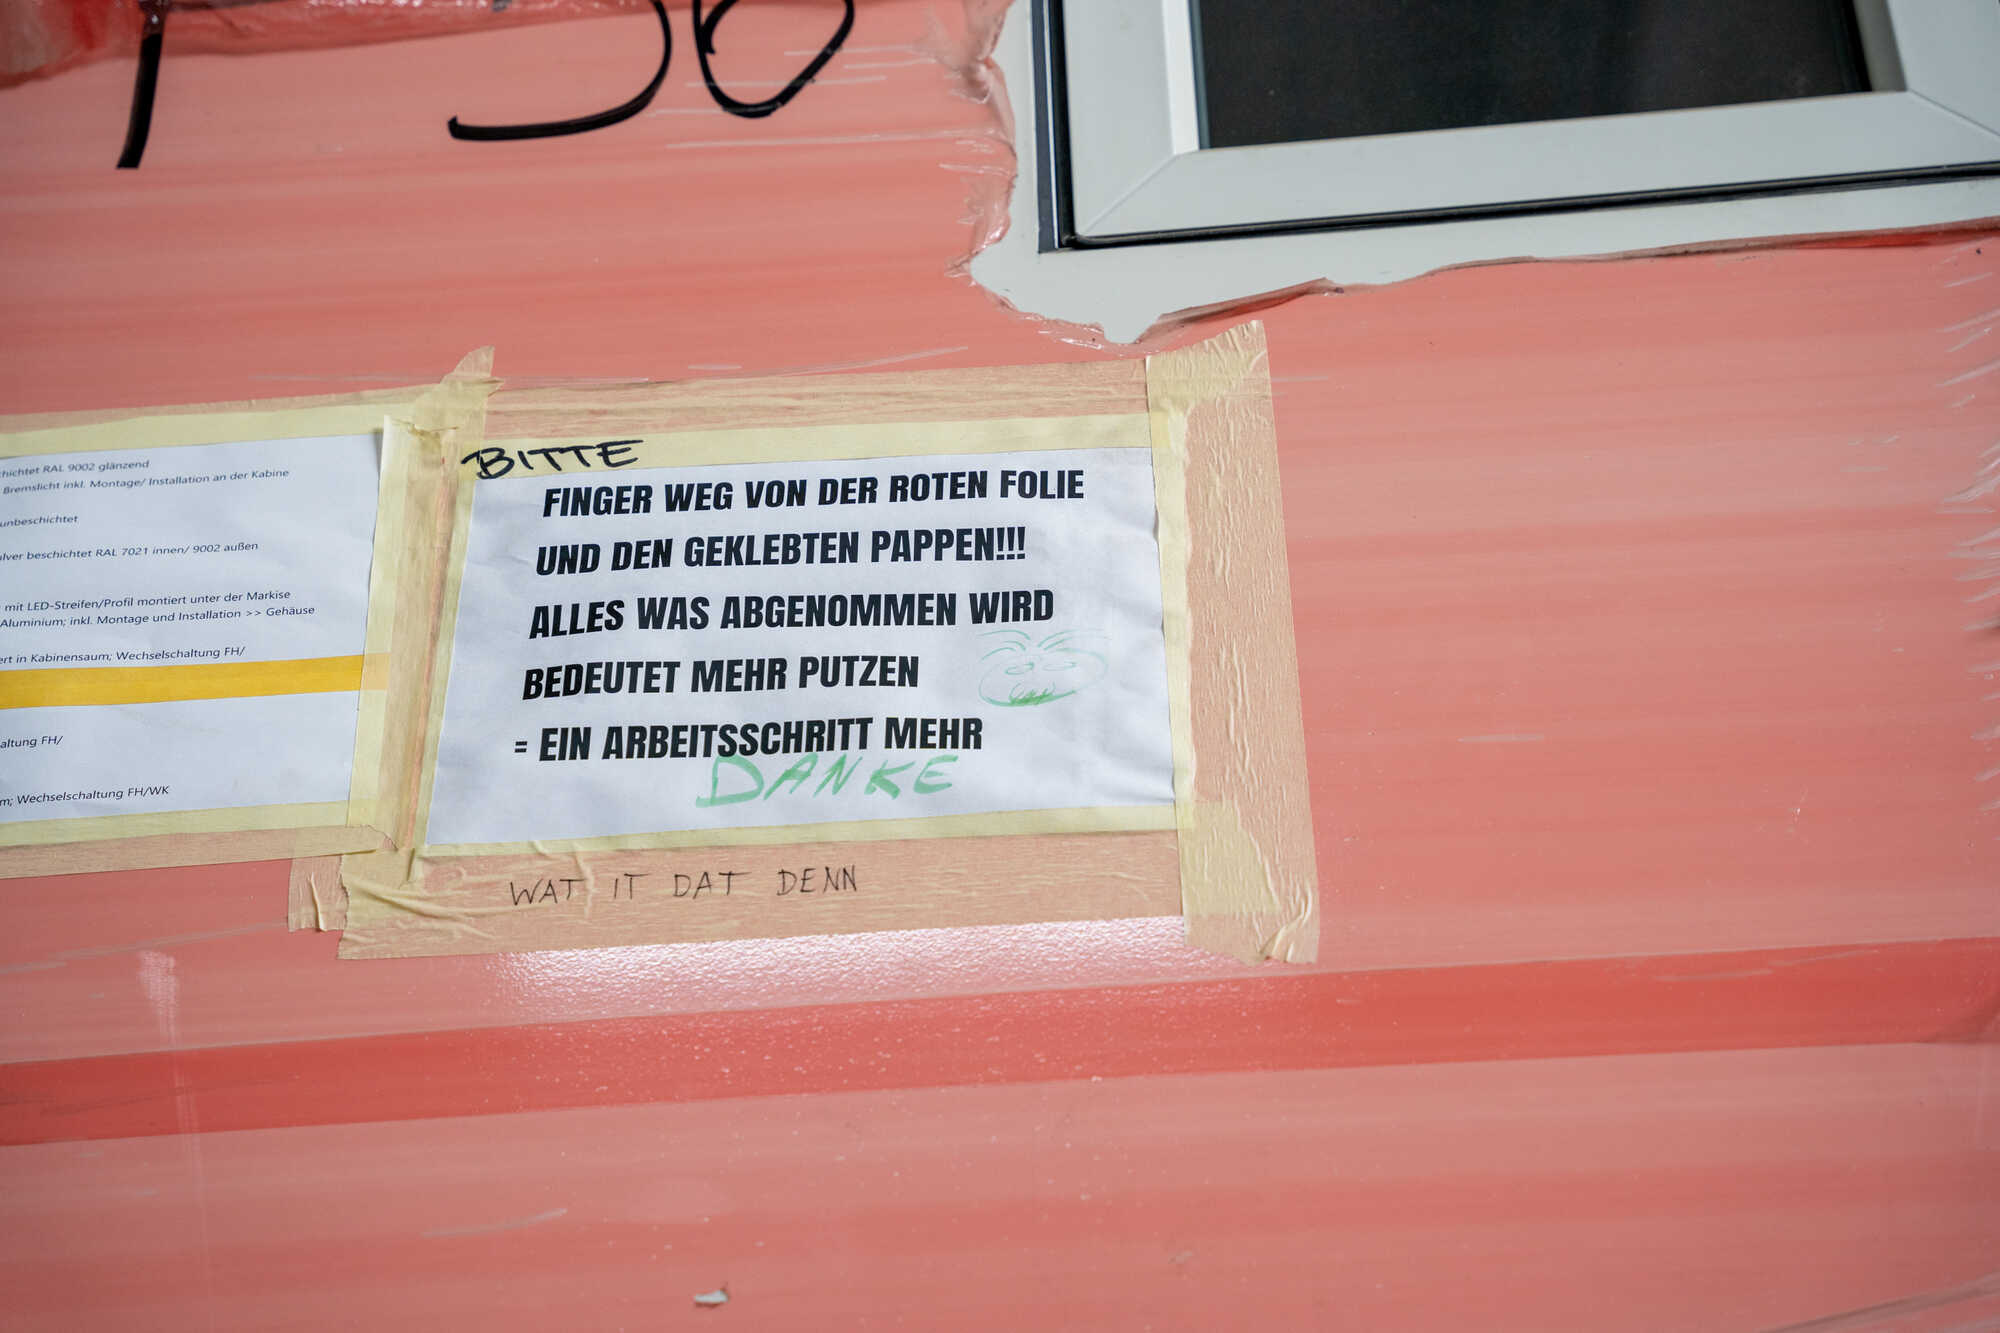 36
chichtet RAL 9002 glänzend
Bremslicht inkl. Montage/ Installation an der Kabine
unbeschichtet
ulver beschichtet RAL 7021 innen/ 9002 außen
mit LED-Streifen/Profil montiert unter der Markise
Aluminium; inkl. Montage und Installation >> Gehäuse
ert in Kabinensaum; Wechselschaltung FH/
altung FH/
m; Wechselschaltung FH/WK
BITTE
FINGER WEG VON DER ROTEN FOLIE
UND DEN GEKLEBTEN PAPPEN!!!
ALLES WAS ABGENOMMEN WIRD
BEDEUTET MEHR PUTZEN
= EIN ARBEITSSCHRITT MEHR
DANKE
WAT IT DAT DENN